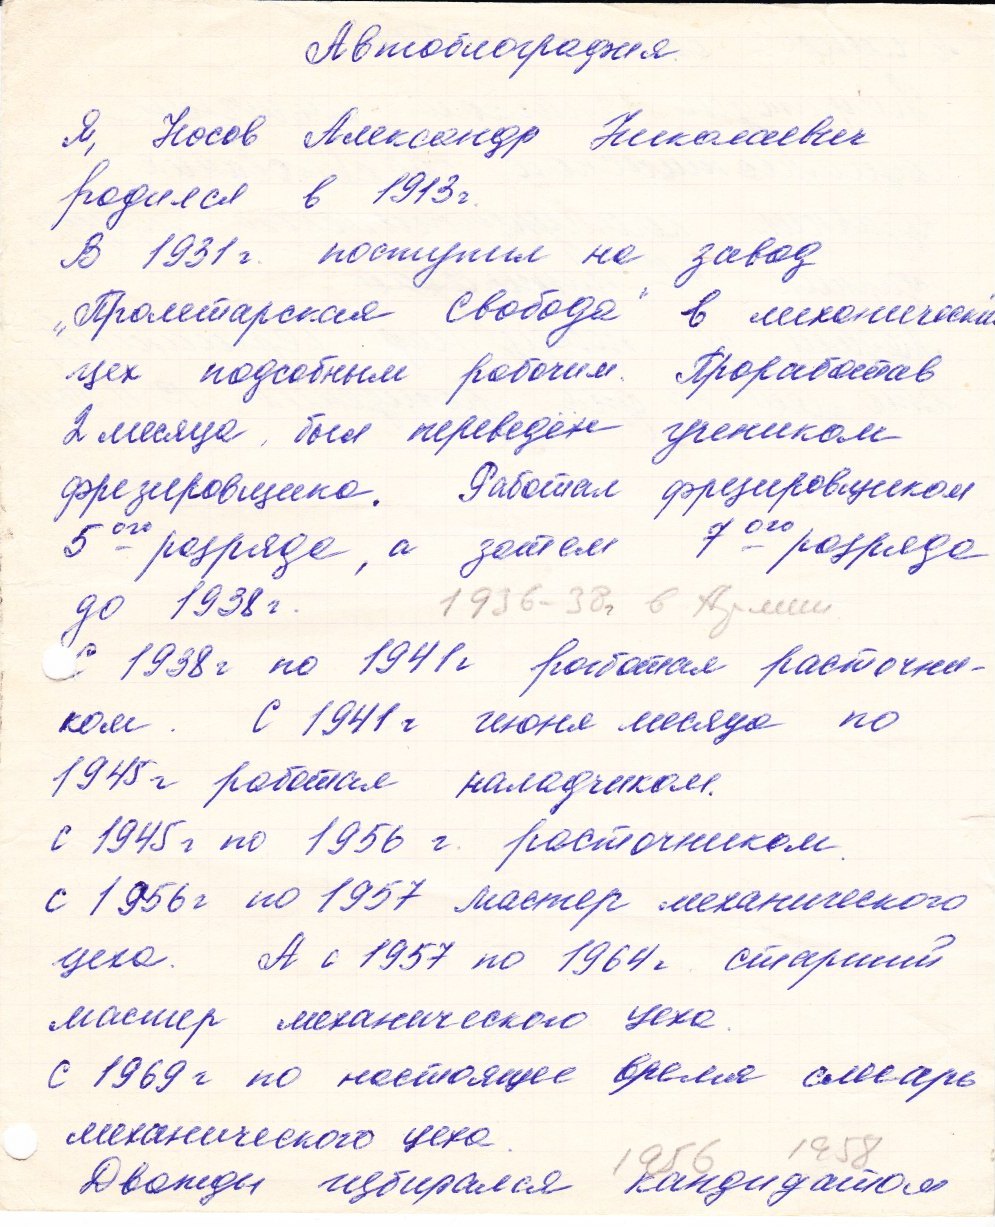 Автобиография.
Я, Носов Александр Николаевич
родился в 1913г.
В 1931г. поступил на завод
„Пролетарская Свобода" в механический
цех подсобным рабочим. Проработав
2 месяца, был переведён учеником
фрезировщика. Работал фрезировщиком
5ого разряда, а затем 7ого разряда
до 1938г. 1936-38г в Армии
С 1938г по 1941г работал расточни-
ком. С 1941г июня месяца по
1945г работал наладчиком.
с 1945г по 1956 г. расточником.
с 1956г по 1957 мастер механического
цеха. А с 1957 по 1964г. старший
мастер механического цеха.
с 1969г по настоящее время слесарь
механического цеха.
1956 1958
Дважды избирался кандидатом